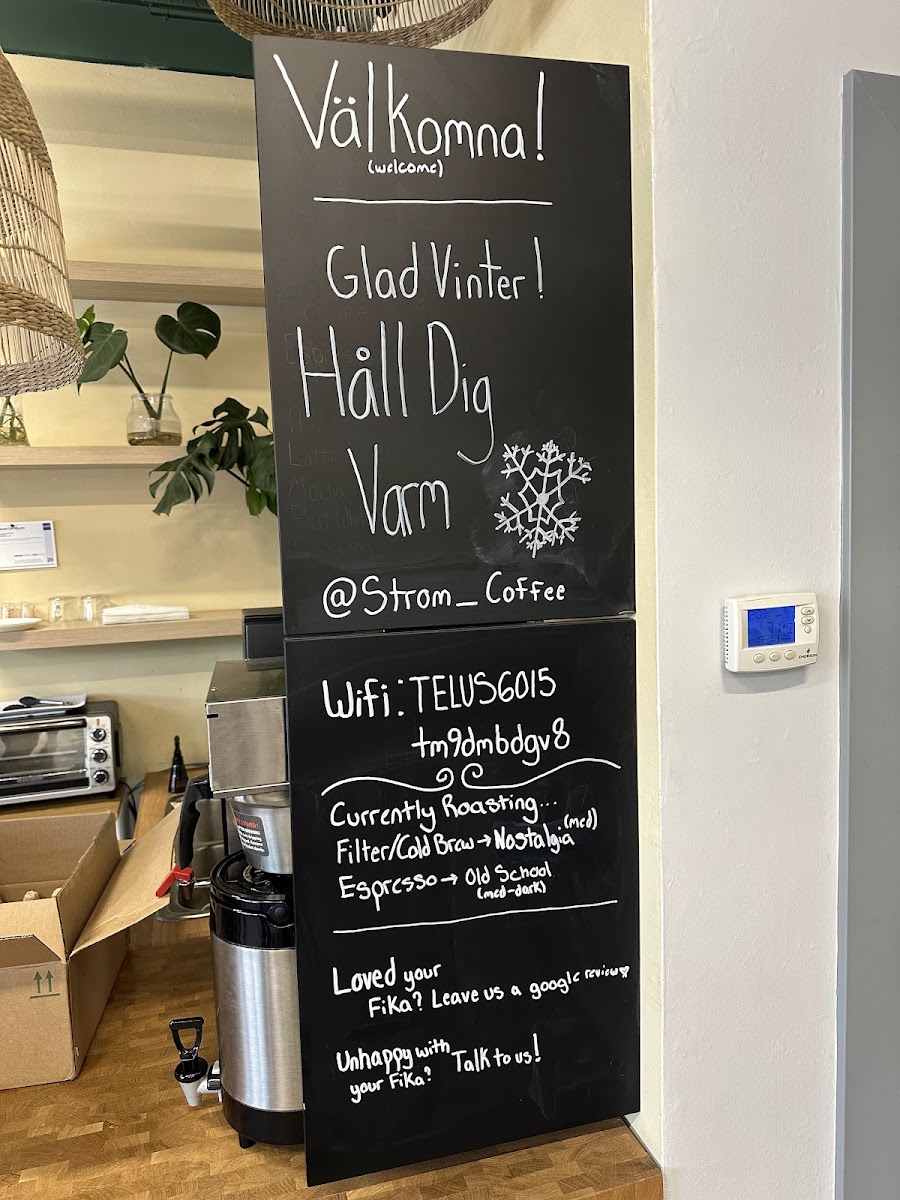 Välkomna!
(welcome)
Glad Vinter!
Håll Dig
Varm
@Strom_Coffee
Wifi: TELUS6015
tm9dmbdgv8
Currently Roasting...
Filter/Cold Brew → Nostalgia (med)
Espresso → Old School
(med-dark)
Loved your
Fika? Leave us a google review
Unhappy with
your Fika? Talk to us!
EMERSON